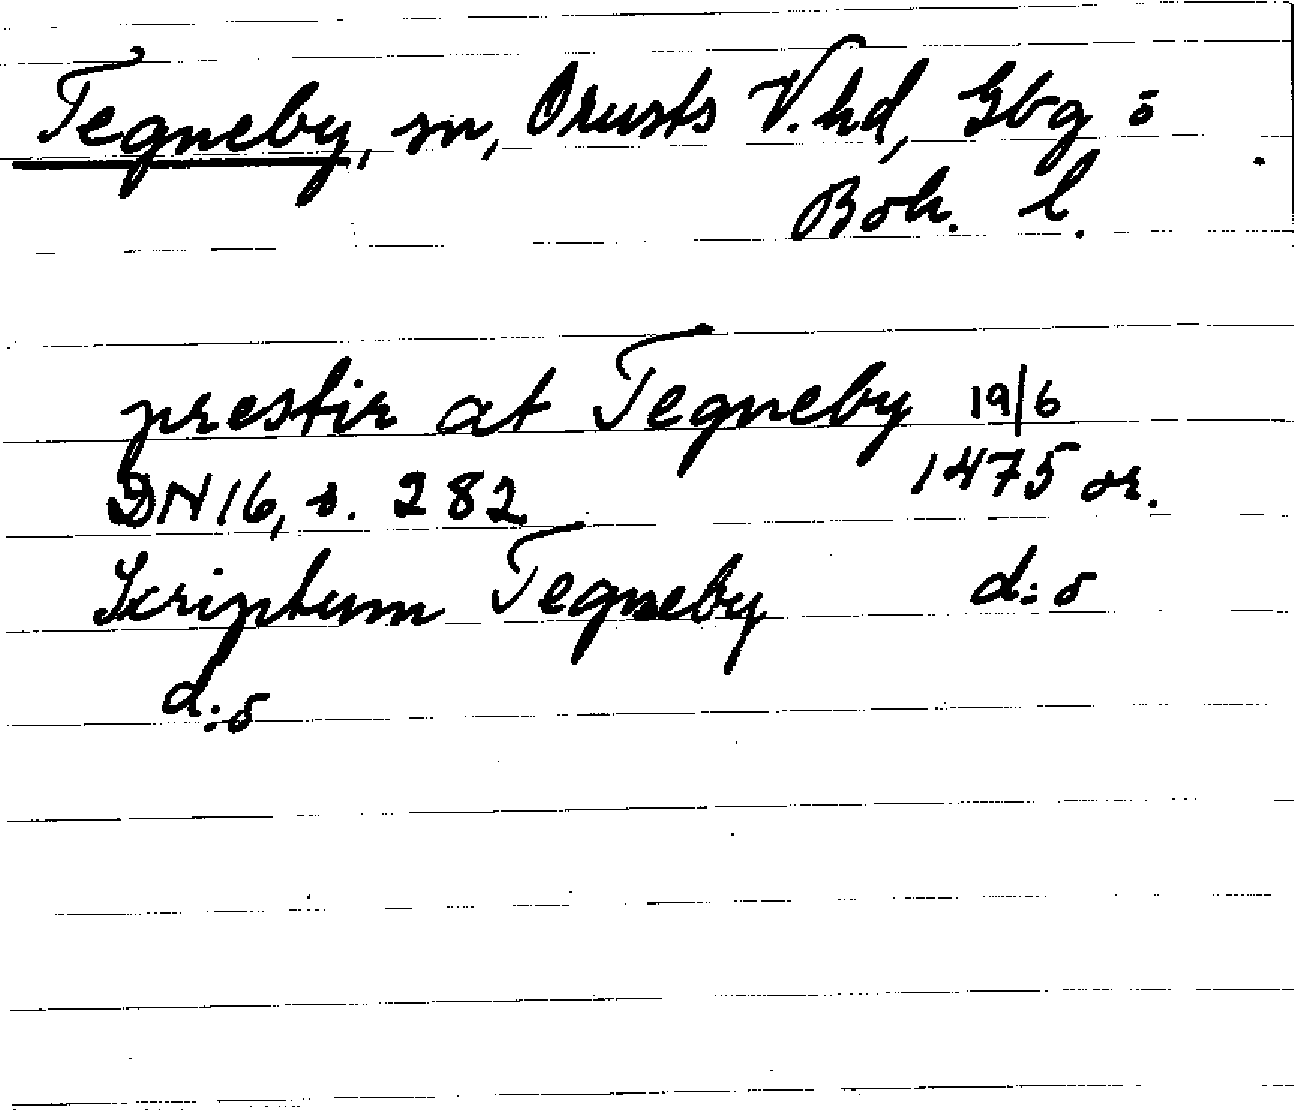 Tegneby, sn, Orusts V. hd, Gbg o
Boh. l.
prestir at Tegneby 19/6
DN 16, s. 282 1475 or.
Scriptum Tegneby d:o
d:o